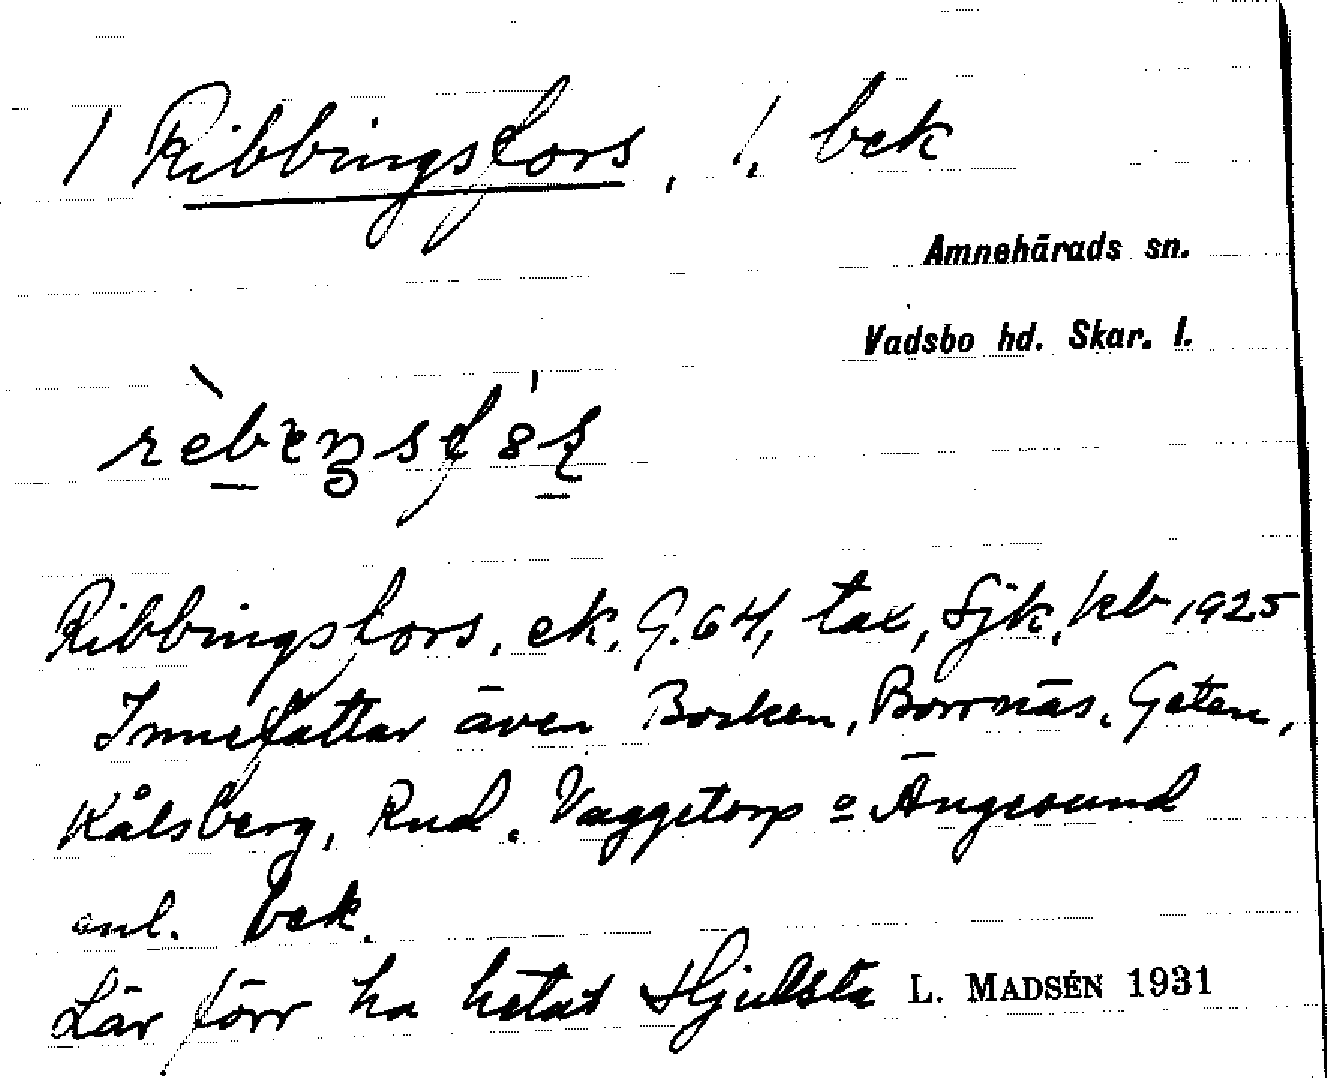 1 Ribbingsfors, 1. bek
Amnehärads sn.
Vadsbo hd. Skar. l.
Ribbingsfors, ek. G. 64, tax, Sjk, kb 1925
Innefattar även Borken, Borrnäs, Geten,
Kålsberg, Rud, Vaggetorp o Ängesund
enl. bek.
Lär förr ha hetat Hjulsta L. MADSÉN 1931